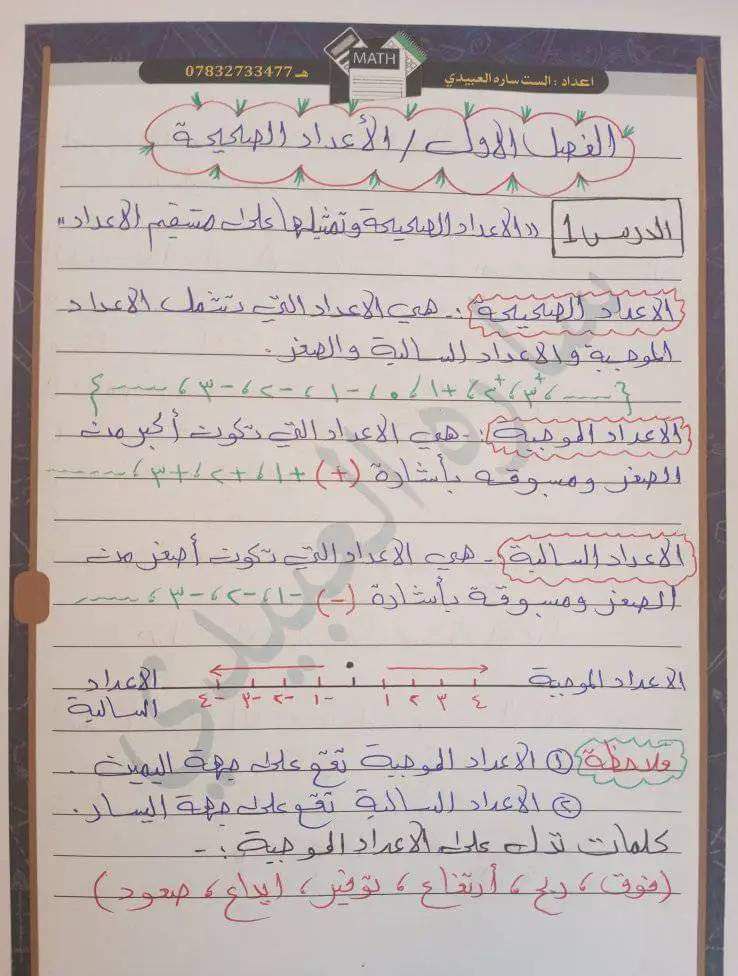 MATH
اعداد : الست ساره العبيدي
هـ 07832733477
الفصل الاول / الأعداد الصحيحة
الدرس 1 ((الاعداد الصحيحة وتمثيلها على مستقيم الاعداد))
الاعداد الصحيحة :- هي الاعداد التي تشمل الاعداد
الموجبة والاعداد السالبة والصفر .
{ ..... ، ٣+ ، ٢+ ، ١+ ، ٠ ، ١- ، ٢- ، ٣- ، ..... }
الاعداد الموجبة :- هي الاعداد التي تكون أكبر من
الصفر ومسبوقه بأشارة (+) ١+ ، ٢+ ، ٣+ ، .....
الاعداد السالبة - هي الاعداد التي تكون أصغر من
الصفر ومسبوقة بأشارة (-) ١- ، ٢- ، ٣- ، .....
الاعداد الموجبة ٤ ٣ ٢ ١ ١- ٢- ٣- ٤- الاعداد
السالبة
ملاحظة ① الاعداد الموجبة تقع على جهة اليمين .
② الاعداد السالبة تقع على جهة اليسار .
كلمات تدل على الاعداد الموجبة :-
(فوق ، ربح ، أرتفاع ، توفير ، ايداع ، صعود)
ساره العبيدي